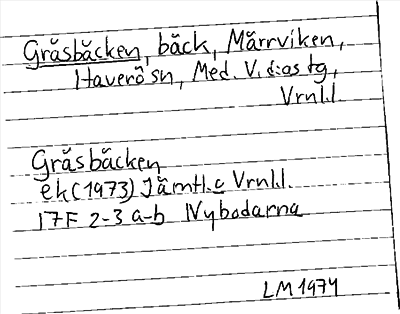 Gräsbäcken, bäck, Märrviken,
Haverö sn, Med. V. d:as tg,
Vrnl.l.
Gräsbäcken
ek (1973) Jämtl. o Vrnl.l.
17F 2-3 a-b Nybodarna
LM 1974